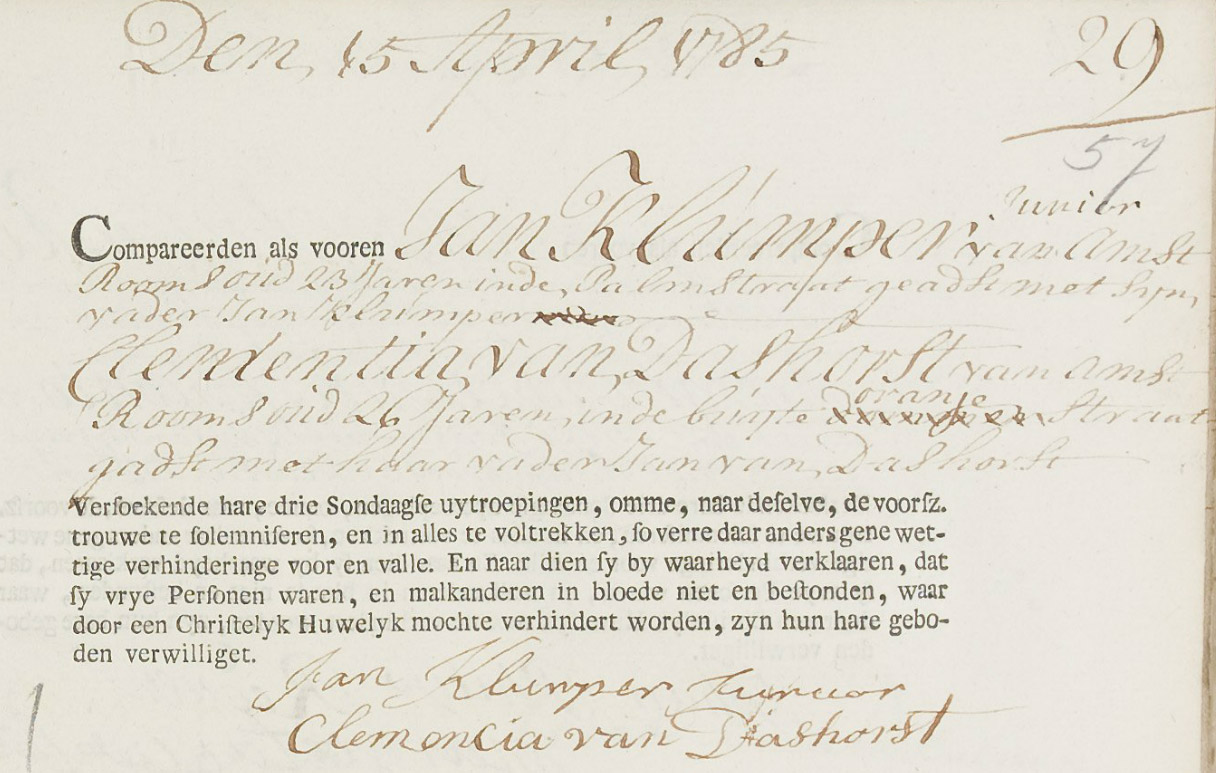 Den 15 April 1785
29
57
Junior
Compareerden als vooren Jan Klumper van Amst
Rooms oud 23 Jaren in de Palmstraat geadst met syn
vader Jan Klumper
Clementia van Dashorst van Amst
oranje
Rooms oud 26 Jaren in de buyte straat
gadst met haar vader Jan van Dashorst
Verſoekende hare drie Sondaagſe uytroepingen, omme, naar deſelve, de voorſz.
trouwe te ſolemniſeren, en in alles te voltrekken, ſo verre daar anders gene wet-
tige verhinderinge voor en valle. En naar dien ſy by waarheyd verklaaren, dat
ſy vrye Perſonen waren, en malkanderen in bloede niet en beſtonden, waar
door een Chriſtelyk Huwelyk mochte verhindert worden, zyn hun hare gebo-
den verwilliget.
Jan Klumper Junior
Clemencia van Dashorst